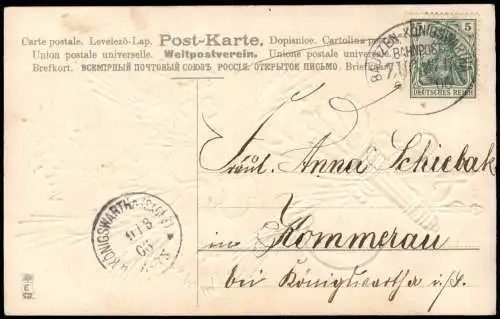 Carte postale. Levelező-Lap. Post-Karte. Dopisnice. Cartolina
Union postale universelle. Weltpostverein. Unione postale universale.
Brefkort. ВСЕМІРНЫЙ ПОЧТОВЫЙ СОЮЗЪ. РОССІЯ: ОТКРЫТОЕ ПИСЬМО.
BAUTZEN-KÖNIGSWARTHA
BAHNPOST
5
DEUTSCHES REICH
Fräul. Anna Schiebak
in Kommerau
bei Königswartha i/S.
KÖNIGSWARTHA